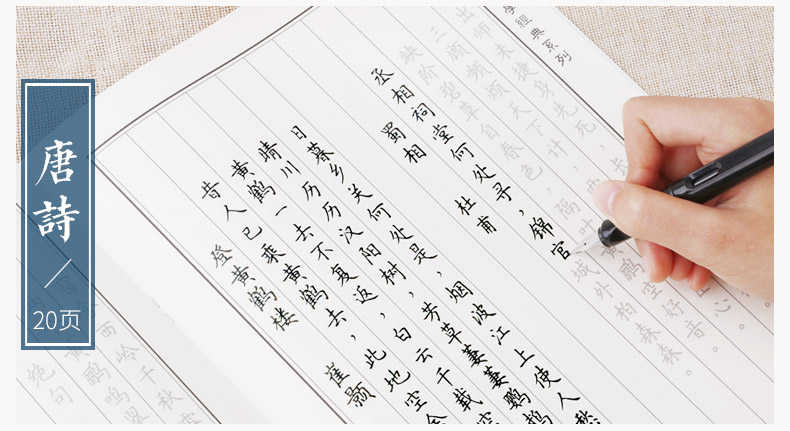 唐詩
20页
學經典系列
出师未捷身先死
三顾频烦天下计
映阶碧草自春色,隔叶黄鹂空好音。
丞相祠堂何处寻,锦宫城外柏森森。
蜀相 杜甫
日暮乡关何处是,烟波江上使人愁
晴川历历汉阳树,芳草萋萋鹦鹉
黄鹤一去不复返,白云千载空
昔人已乘黄鹤去,此地空余
登黄鹤楼 崔颢
西岭千秋
黄鹂鸣翠
绝句